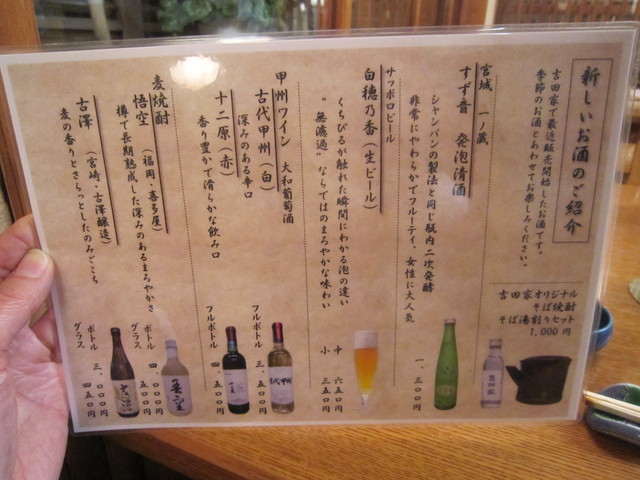 新しいお酒のご紹介
吉田家で最近販売開始したお酒です。
季節のお酒とあわせてお楽しみください。
吉田家オリジナル
そば焼酎
そば湯割りセット
1,000円
宮城 一ノ蔵
すず音 発泡清酒
シャンパンの製法と同じ瓶内二次発酵
非常にやわらかでフルーティ、女性に大人気
一、三〇〇円
サッポロビール
白穂乃香(生ビール)
くちびるが触れた瞬間にわかる泡の違い
"無濾過"ならではのまろやかな味わい
中 六五〇円
小 三五〇円
甲州ワイン 大和葡萄酒
古代甲州(白)
深みのある辛口
フルボトル 三、五〇〇円
十二原(赤)
香り豊かで滑らかな飲み口
フルボトル 四、五〇〇円
麦焼酎
悟空 (福岡・喜多屋)
樽で長期熟成した深みのあるまろやかさ
ボトル 四、五〇〇円
グラス 五〇〇円
古澤 (宮崎・古澤醸造)
麦の香りとさらっとしたのみごこち
ボトル 三、〇〇〇円
グラス 四五〇円